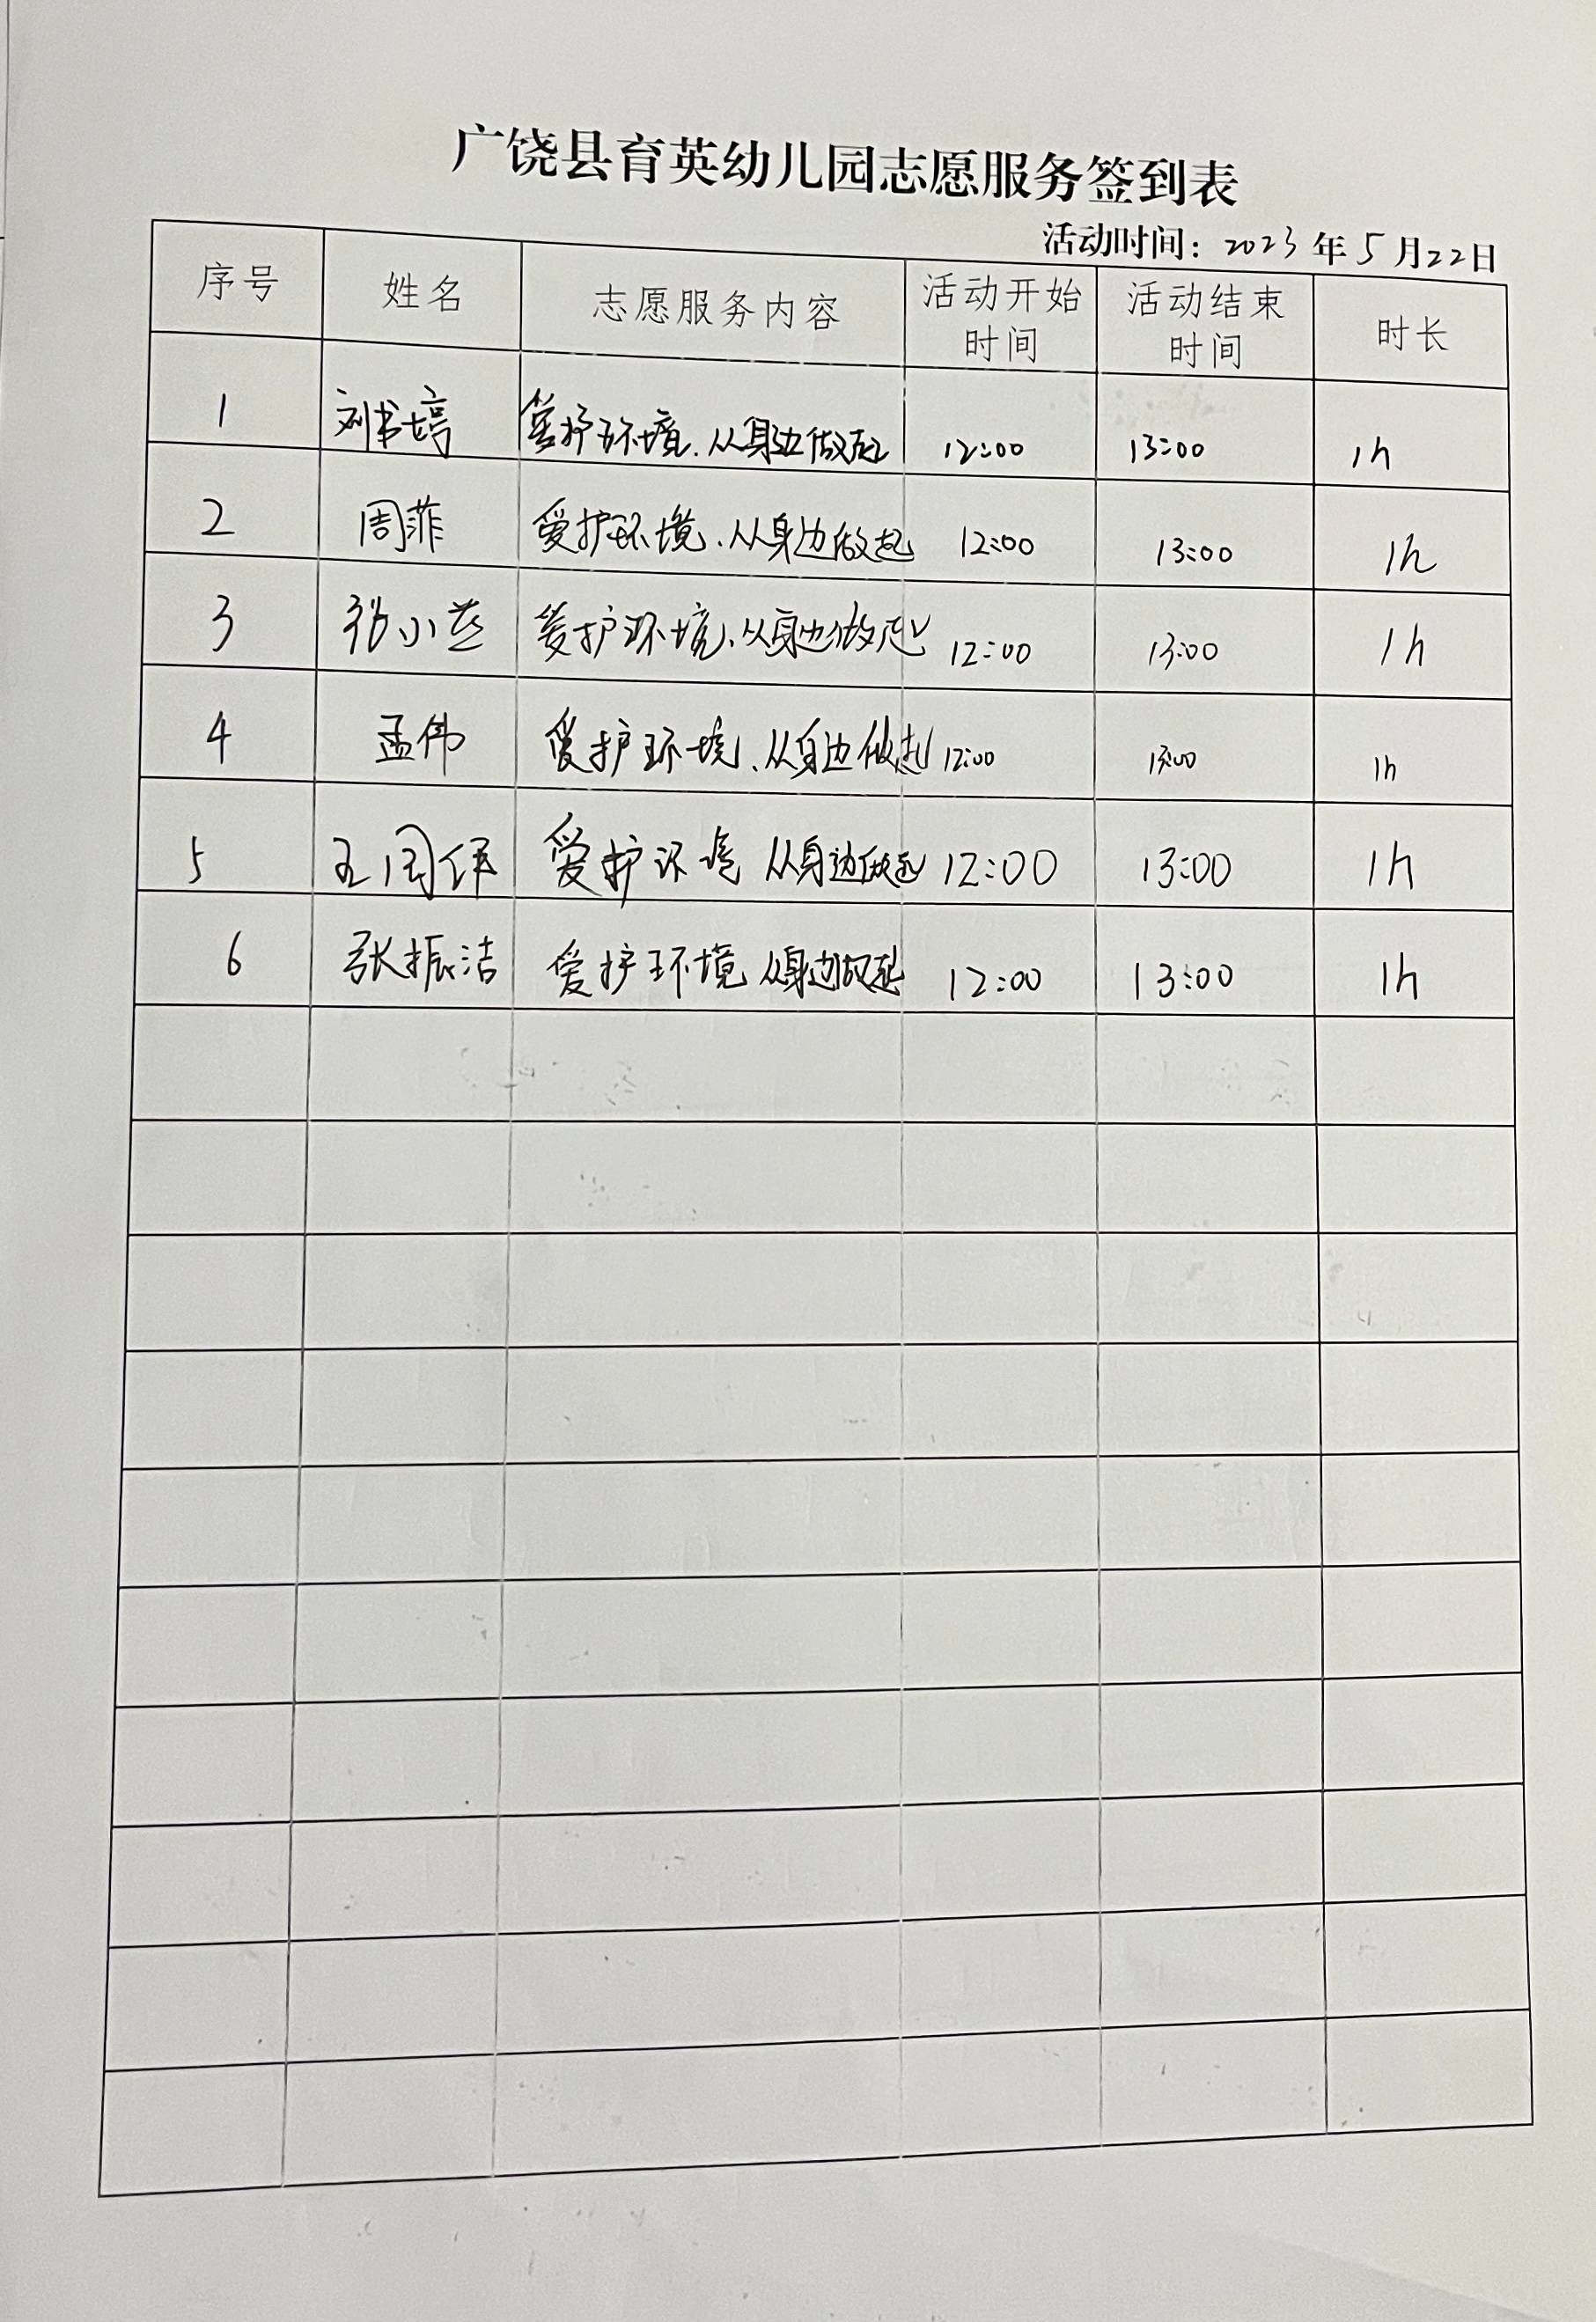 广饶县育英幼儿园志愿服务签到表
活动时间：2023年5月22日
序号 姓名 志愿服务内容 活动开始时间 活动结束时间 时长
1 刘书婷 爱护环境、从身边做起 12:00 13:00 1h
2 周菲 爱护环境、从身边做起 12:00 13:00 1h
3 张小芸 爱护环境、从身边做起 12:00 13:00 1h
4 孟伟 爱护环境、从身边做起 12:00 13:00 1h
5 王周伟 爱护环境 从身边做起 12:00 13:00 1h
6 张振洁 爱护环境 从身边做起 12:00 13:00 1h